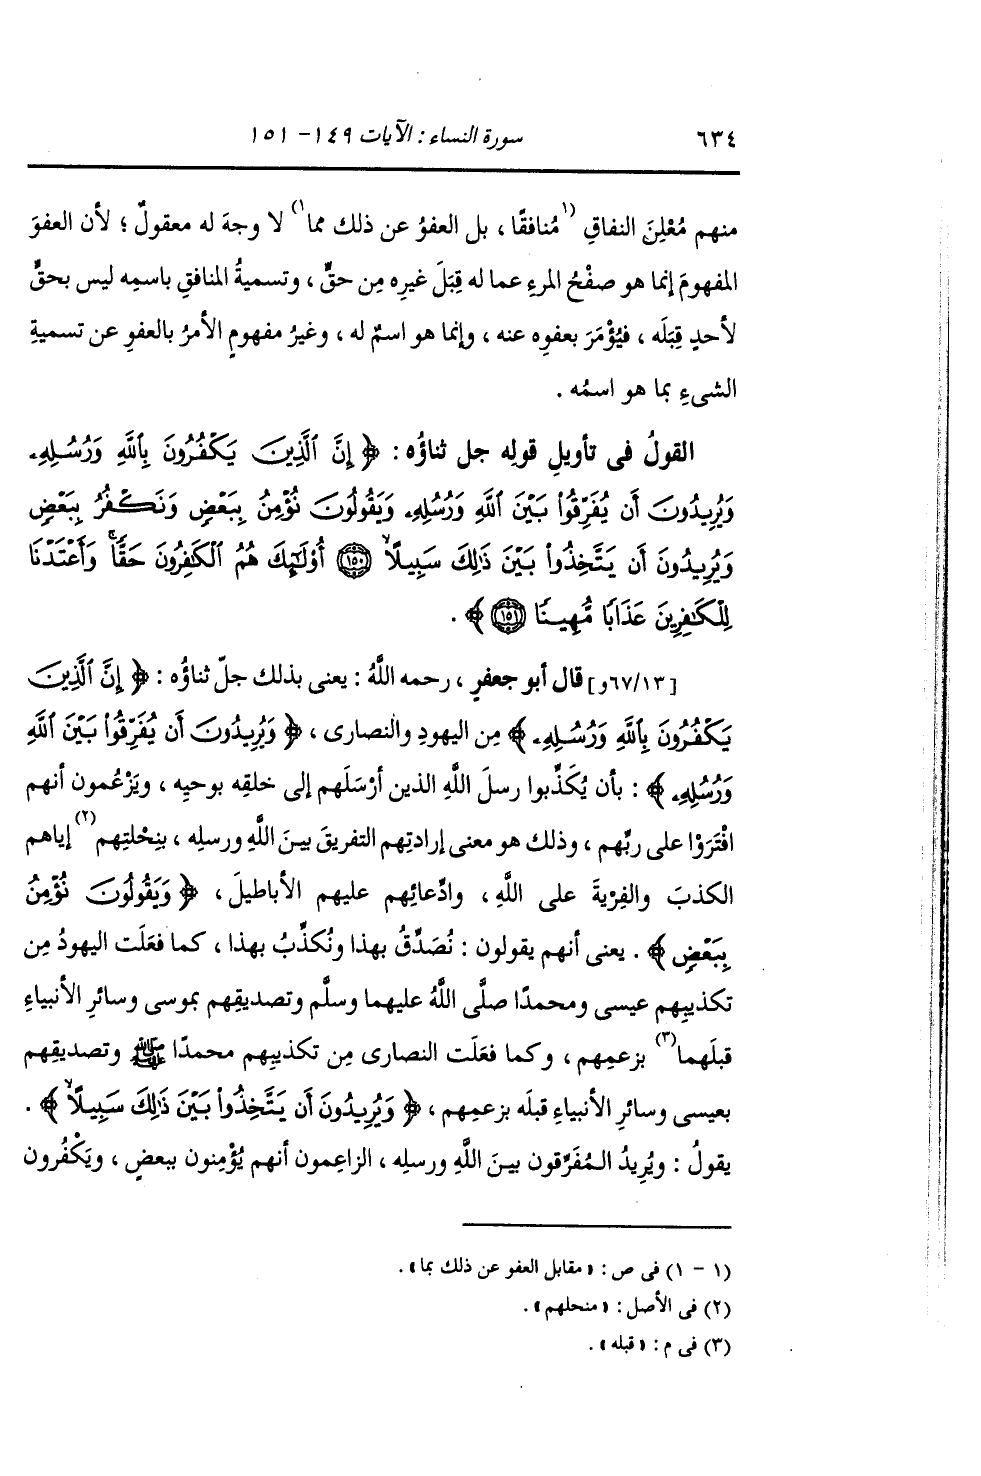 ٦٣٤ سورة النساء : الآيات ١٤٩- ١٥١
منهم مُعْلِنَ النفاقِ (١مُنافقًا ، بل العفوُ عن ذلك مما١) لا وجهَ له معقولٌ ؛ لأن العفوَ
المفهومَ إنما هو صفْحُ المرءِ عما له قِبَلَ غيرِه مِن حقٍّ ، وتسميةُ المنافقِ باسمِه ليس بحقٍّ
لأحدٍ قِبَلَه ، فيُؤْمَرَ بعفوِه عنه ، وإنما هو اسمٌ له ، وغيرُ مفهومٍ الأمرُ بالعفوِ عن تسميةِ
الشىءِ بما هو اسمُه .
القولُ فى تأويلِ قولِه جل ثناؤُه : ﴿ إِنَّ ٱلَّذِينَ يَكْفُرُونَ بِٱللَّهِ وَرُسُلِهِۦ
وَيُرِيدُونَ أَن يُفَرِّقُوا۟ بَيْنَ ٱللَّهِ وَرُسُلِهِۦ وَيَقُولُونَ نُؤْمِنُ بِبَعْضٍ وَنَكْفُرُ بِبَعْضٍ
وَيُرِيدُونَ أَن يَتَّخِذُوا۟ بَيْنَ ذَٰلِكَ سَبِيلًا ۙ ١٥٠ أُو۟لَٰٓئِكَ هُمُ ٱلْكَٰفِرُونَ حَقًّا ۚ وَأَعْتَدْنَا
لِلْكَٰفِرِينَ عَذَابًا مُّهِينًا ١٥١ ﴾ .
[٦٧/١٣و] قال أبو جعفرٍ ، رحمه اللَّهُ : يعنى بذلك جلّ ثناؤُه : ﴿ إِنَّ ٱلَّذِينَ
يَكْفُرُونَ بِٱللَّهِ وَرُسُلِهِۦ ﴾ مِن اليهودِ والنصارى ، ﴿ وَيُرِيدُونَ أَن يُفَرِّقُوا۟ بَيْنَ ٱللَّهِ
وَرُسُلِهِۦ ﴾ : بأن يُكَذِّبوا رسلَ اللَّهِ الذين أرْسَلَهم إلى خلقِه بوحيِه ، ويَزْعُمون أنهم
افْتَرَوْا على ربِّهم ، وذلك هو معنى إرادتِهم التفريقَ بينَ اللَّهِ ورسلِه ، بنِحْلتِهم(٢) إياهم
الكذبَ والفِرْيةَ على اللَّهِ ، وادِّعائِهم عليهم الأباطيلَ ، ﴿ وَيَقُولُونَ نُؤْمِنُ
بِبَعْضٍ ﴾ . يعنى أنهم يقولون : نُصَدِّقُ بهذا ونُكذِّبُ بهذا ، كما فعَلَت اليهودُ مِن
تكذيبِهم عيسى ومحمدًا صلَّى اللَّهُ عليهما وسلَّم وتصديقِهم بموسى وسائرِ الأنبياءِ
قبلَهما(٣) بزعمِهم ، وكما فعَلَت النصارى مِن تكذيبِهم محمدًا ﷺ وتصديقِهم
بعيسى وسائرِ الأنبياءِ قبلَه بزعمِهم ، ﴿ وَيُرِيدُونَ أَن يَتَّخِذُوا۟ بَيْنَ ذَٰلِكَ سَبِيلًا ۙ ﴾ .
يقولُ : ويُرِيدُ المُفَرِّقون بينَ اللَّهِ ورسلِه ، الزاعِمون أنهم يُؤْمِنون ببعضٍ ، ويَكْفُرون
(١ - ١) فى ص : « مقابل العفو عن ذلك بما » .
(٢) فى الأصل : « منحلهم » .
(٣) فى م : « قبله » .